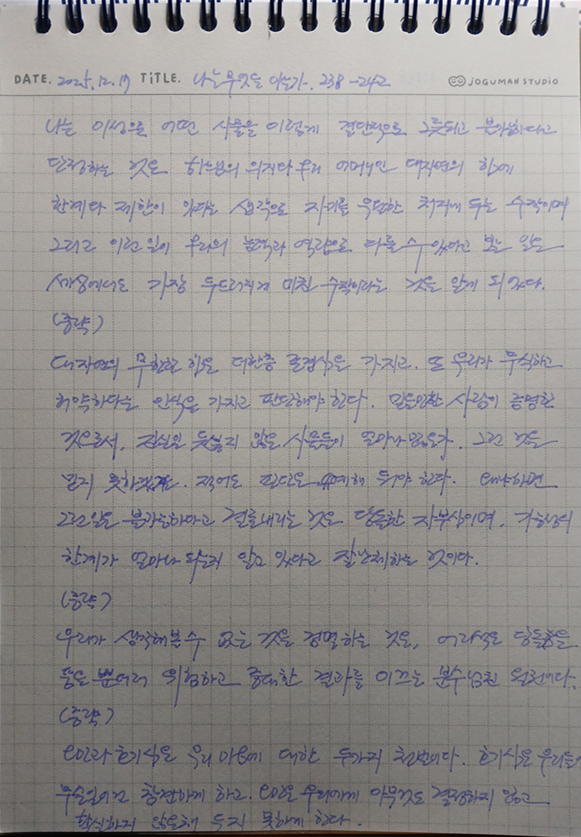 DATE. 2025. 12. 17 TITLE. 나는 무엇을 아는가. 238-242 JOGUMAN STUDIO
나는 이성으로 어떤 사물을 이렇게 결단적으로 그릇되고 불가능하다고
단정하는 것은 하느님의 의지나 우리 어머니인 대자연의 힘에
한계나 제한이 있다는 생각으로 자기를 우월한 처지에 두는 수작이며
그리고 이런 일이 우리의 능력과 역량으로 다룰 수 있다고 보는 일은
세상에서도 가장 두드러지게 미친 수작이라는 것을 알게 되었다.
(중략)
대자연의 무한한 힘은 더한층 존경심을 가지고, 또 우리가 무식하고
허약하다는 인식을 가지고 판단해야 한다. 믿음직한 사람이 증명한
것으로서, 진실인 듯싶지 않은 사물들이 얼마나 많은가. 그런 것을
믿지 못하겠거든, 적어도 판단은 유예해 둬야 한다. 왜냐하면
그런 일은 불가능하다고 결론내리는 것은 당돌한 자부심이며, 가능성의
한계가 얼마나 되는지 알고 있다고 잘난체하는 것이다.
(중략)
우리가 생각해볼 수 없는 것을 경멸하는 것은, 어리석은 당돌함을
품을 뿐더러 위험하고 중대한 결과를 이끄는 분수넘친 일이다.
(중략)
영광과 호기심은 우리 마음에 대한 두가지 천벌이다. 호기심은 우리들
무슨일이건 참견하게 하고, 영광은 우리에게 아무것도 결정하지 않고
확실하지 않은채 두지 못하게 한다.